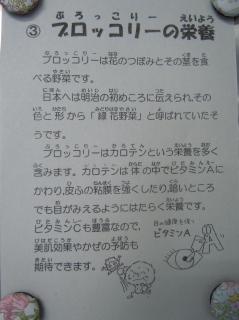 ③ ブロッコリーの栄養
ブロッコリーは花のつぼみとその茎を食
べる野菜です。
日本へは明治の初めころに伝えられ、その
色と形から「緑花野菜」と呼ばれていたそ
うです。
ブロッコリーはカロテンという栄養を多く
含みます。カロテンは体の中でビタミンAに
かわり、皮ふの粘膜を強くしたり、暗いところ
でも目がみえるようにはたらく栄養です。
ビタミンCも豊富なので、
美肌効果やかぜの予防も
期待できます。
目の健康を保つ
ビタミンA